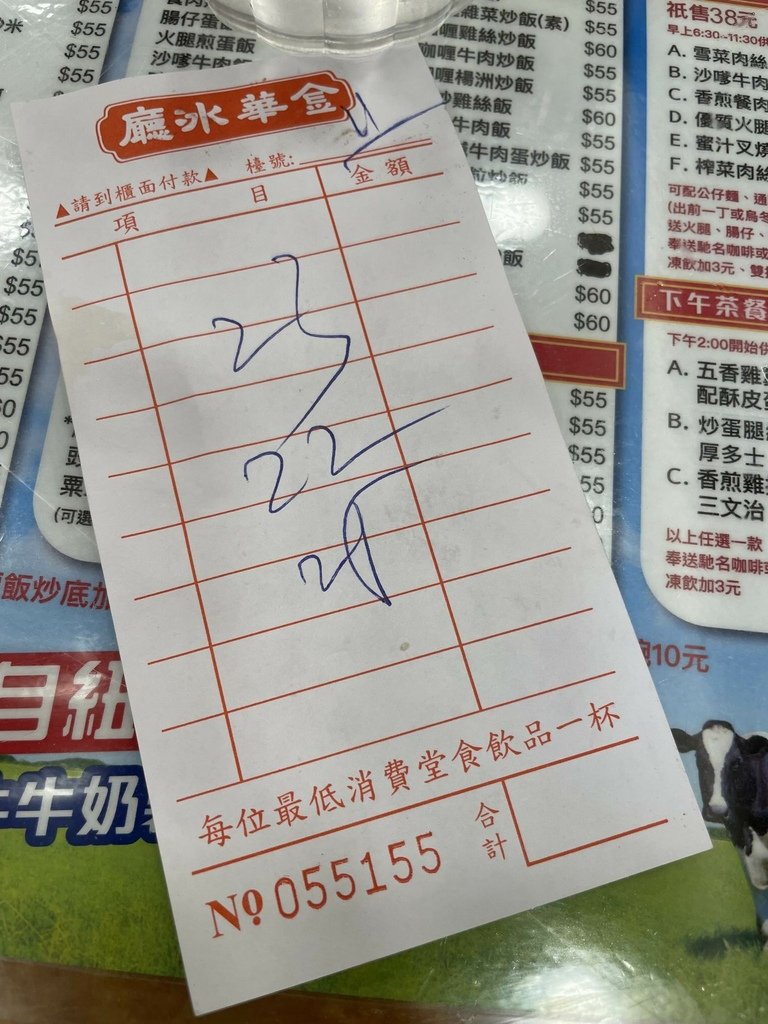 廳冰華金
▲請到櫃面付款▲ 檯號:
項 目 金額
23
22
28
每位最低消費堂食飲品一杯
合計
Nº 055155
腸仔蛋
火腿煎蛋飯
沙嗲牛肉飯
$55
$55
$55
$55
雜菜炒飯(素) $55
咖喱雞絲炒飯 $55
咖喱牛肉炒飯 $60
咖喱楊洲炒飯 $55
炒雞絲飯 $55
牛肉飯 $60
牛肉蛋炒飯 $55
$55
$55
飯
$60
$60
$55
$55
$55
$55
$55
祇售38元
早上6:30~11:30供
A. 雪菜肉絲
B. 沙嗲牛肉
C. 香煎餐肉
D. 優質火腿
E. 蜜汁叉燒
F. 榨菜肉絲
可配公仔麵、通
(出前一丁或烏冬
送火腿、腸仔、
奉送馳名咖啡或
凍飲加3元、雙
下午茶餐
下午2:00開始供
A. 五香雞
配酥皮蛋
B. 炒蛋腿
厚多士
C. 香煎雞
三文治
以上任選一款
奉送馳名咖啡或
凍飲加3元
10元
飯炒底加
自紐
牛奶